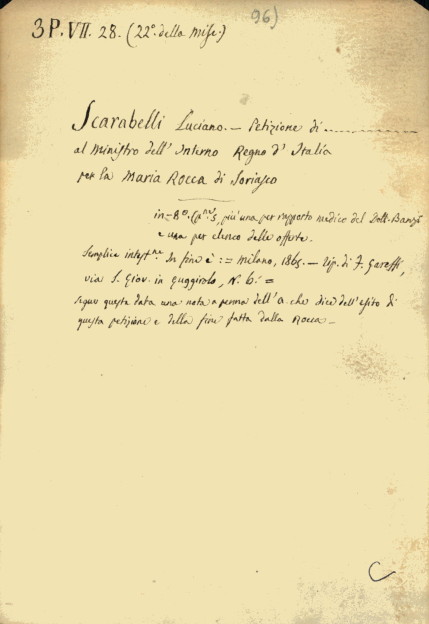 96)
3P.VII. 28. (22º. della Misc.)
Scarabelli Luciano. — Petizione di ...............
al Ministro dell' Interno Regno d' Italia
per la Maria Rocca di Soriasco
in = 8º. (pne. 5, più una per rapporto medico del Dott.
e una per elenco delle offerte.
Semplice intestne. In fine è := Milano, 1865. — Tip. di F. Gareffi,
via S. Giov. in Guggirolo, N. 6. =
Segue questa data una nota a penna dell' a. che dice dell' esito di
questa petizione e della fine fatta dalla Rocca —
C